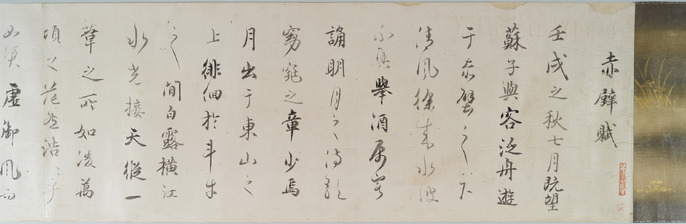 赤壁賦
壬戌之秋七月既望
蘇子與客泛舟遊
于赤壁之下
清風徐來水波
不興舉酒屬客
誦明月之詩歌
窈窕之章少焉
月出于東山之
上徘徊於斗牛
之間白露橫江
水光接天縱一
葦之所如凌萬
頃之茫然浩〻乎
如馮虛御風而